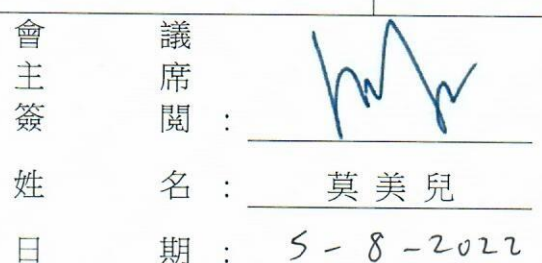 會議
主席
簽閱：
姓名： 莫美兒
日期： 5-8-2022